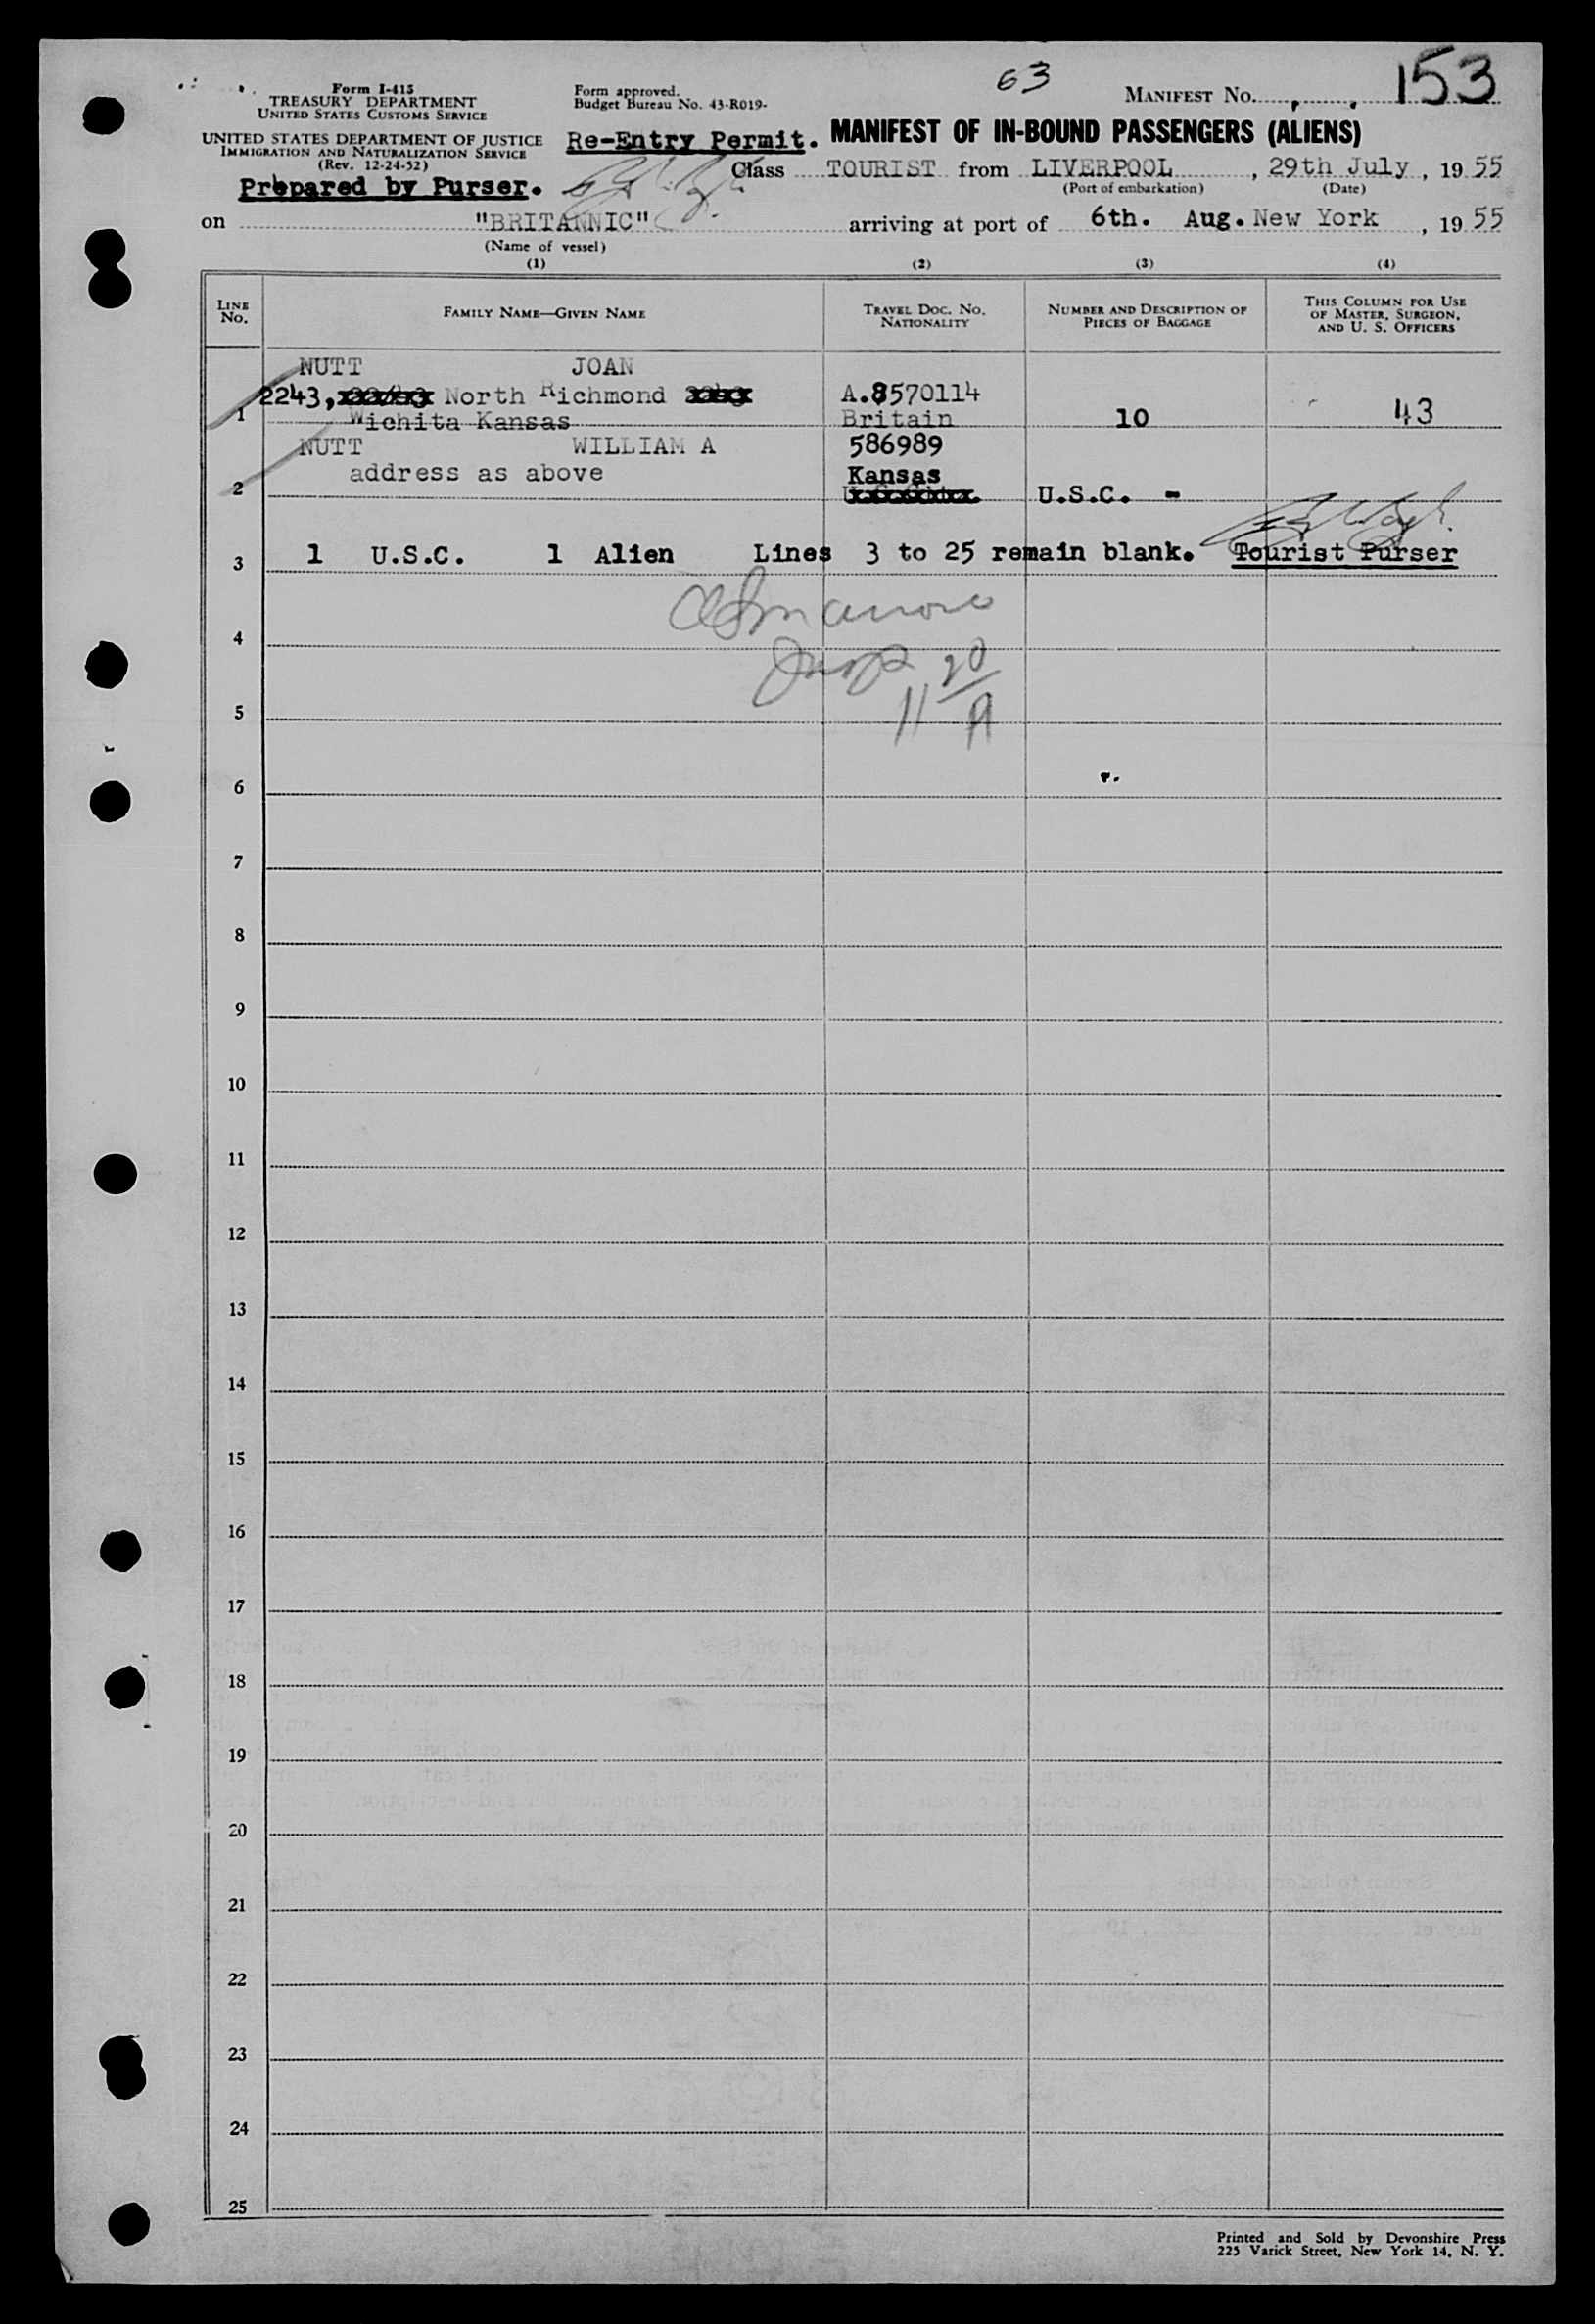 63
153
Form I-415
TREASURY DEPARTMENT
UNITED STATES CUSTOMS SERVICE
UNITED STATES DEPARTMENT OF JUSTICE
IMMIGRATION AND NATURALIZATION SERVICE
(Rev. 12-24-52)
Prepared by Purser.
Form approved.
Budget Bureau No. 43-R019-
MANIFEST No.
Re-Entry Permit. MANIFEST OF IN-BOUND PASSENGERS (ALIENS)
Class TOURIST from LIVERPOOL, 29th July, 1955
(Port of embarkation) (Date)
on "BRITANNIC" arriving at port of 6th. Aug. New York, 1955
(Name of vessel)
(1) (2) (3) (4)
LINE No. FAMILY NAME—GIVEN NAME TRAVEL DOC. No. NATIONALITY NUMBER AND DESCRIPTION OF PIECES OF BAGGAGE THIS COLUMN FOR USE OF MASTER, SURGEON, AND U. S. OFFICERS
NUTT JOAN
2243, North Richmond A.8570114
1 Wichita Kansas Britain 10 43
NUTT WILLIAM A 586989
address as above Kansas
2 U.S.C. -
3 1 U.S.C. 1 Alien Lines 3 to 25 remain blank. Tourist Purser
4
5 11 20/A
6
7
8
9
10
11
12
13
14
15
16
17
18
19
20
21
22
23
24
25
Printed and Sold by Devonshire Press
225 Varick Street, New York 14, N. Y.